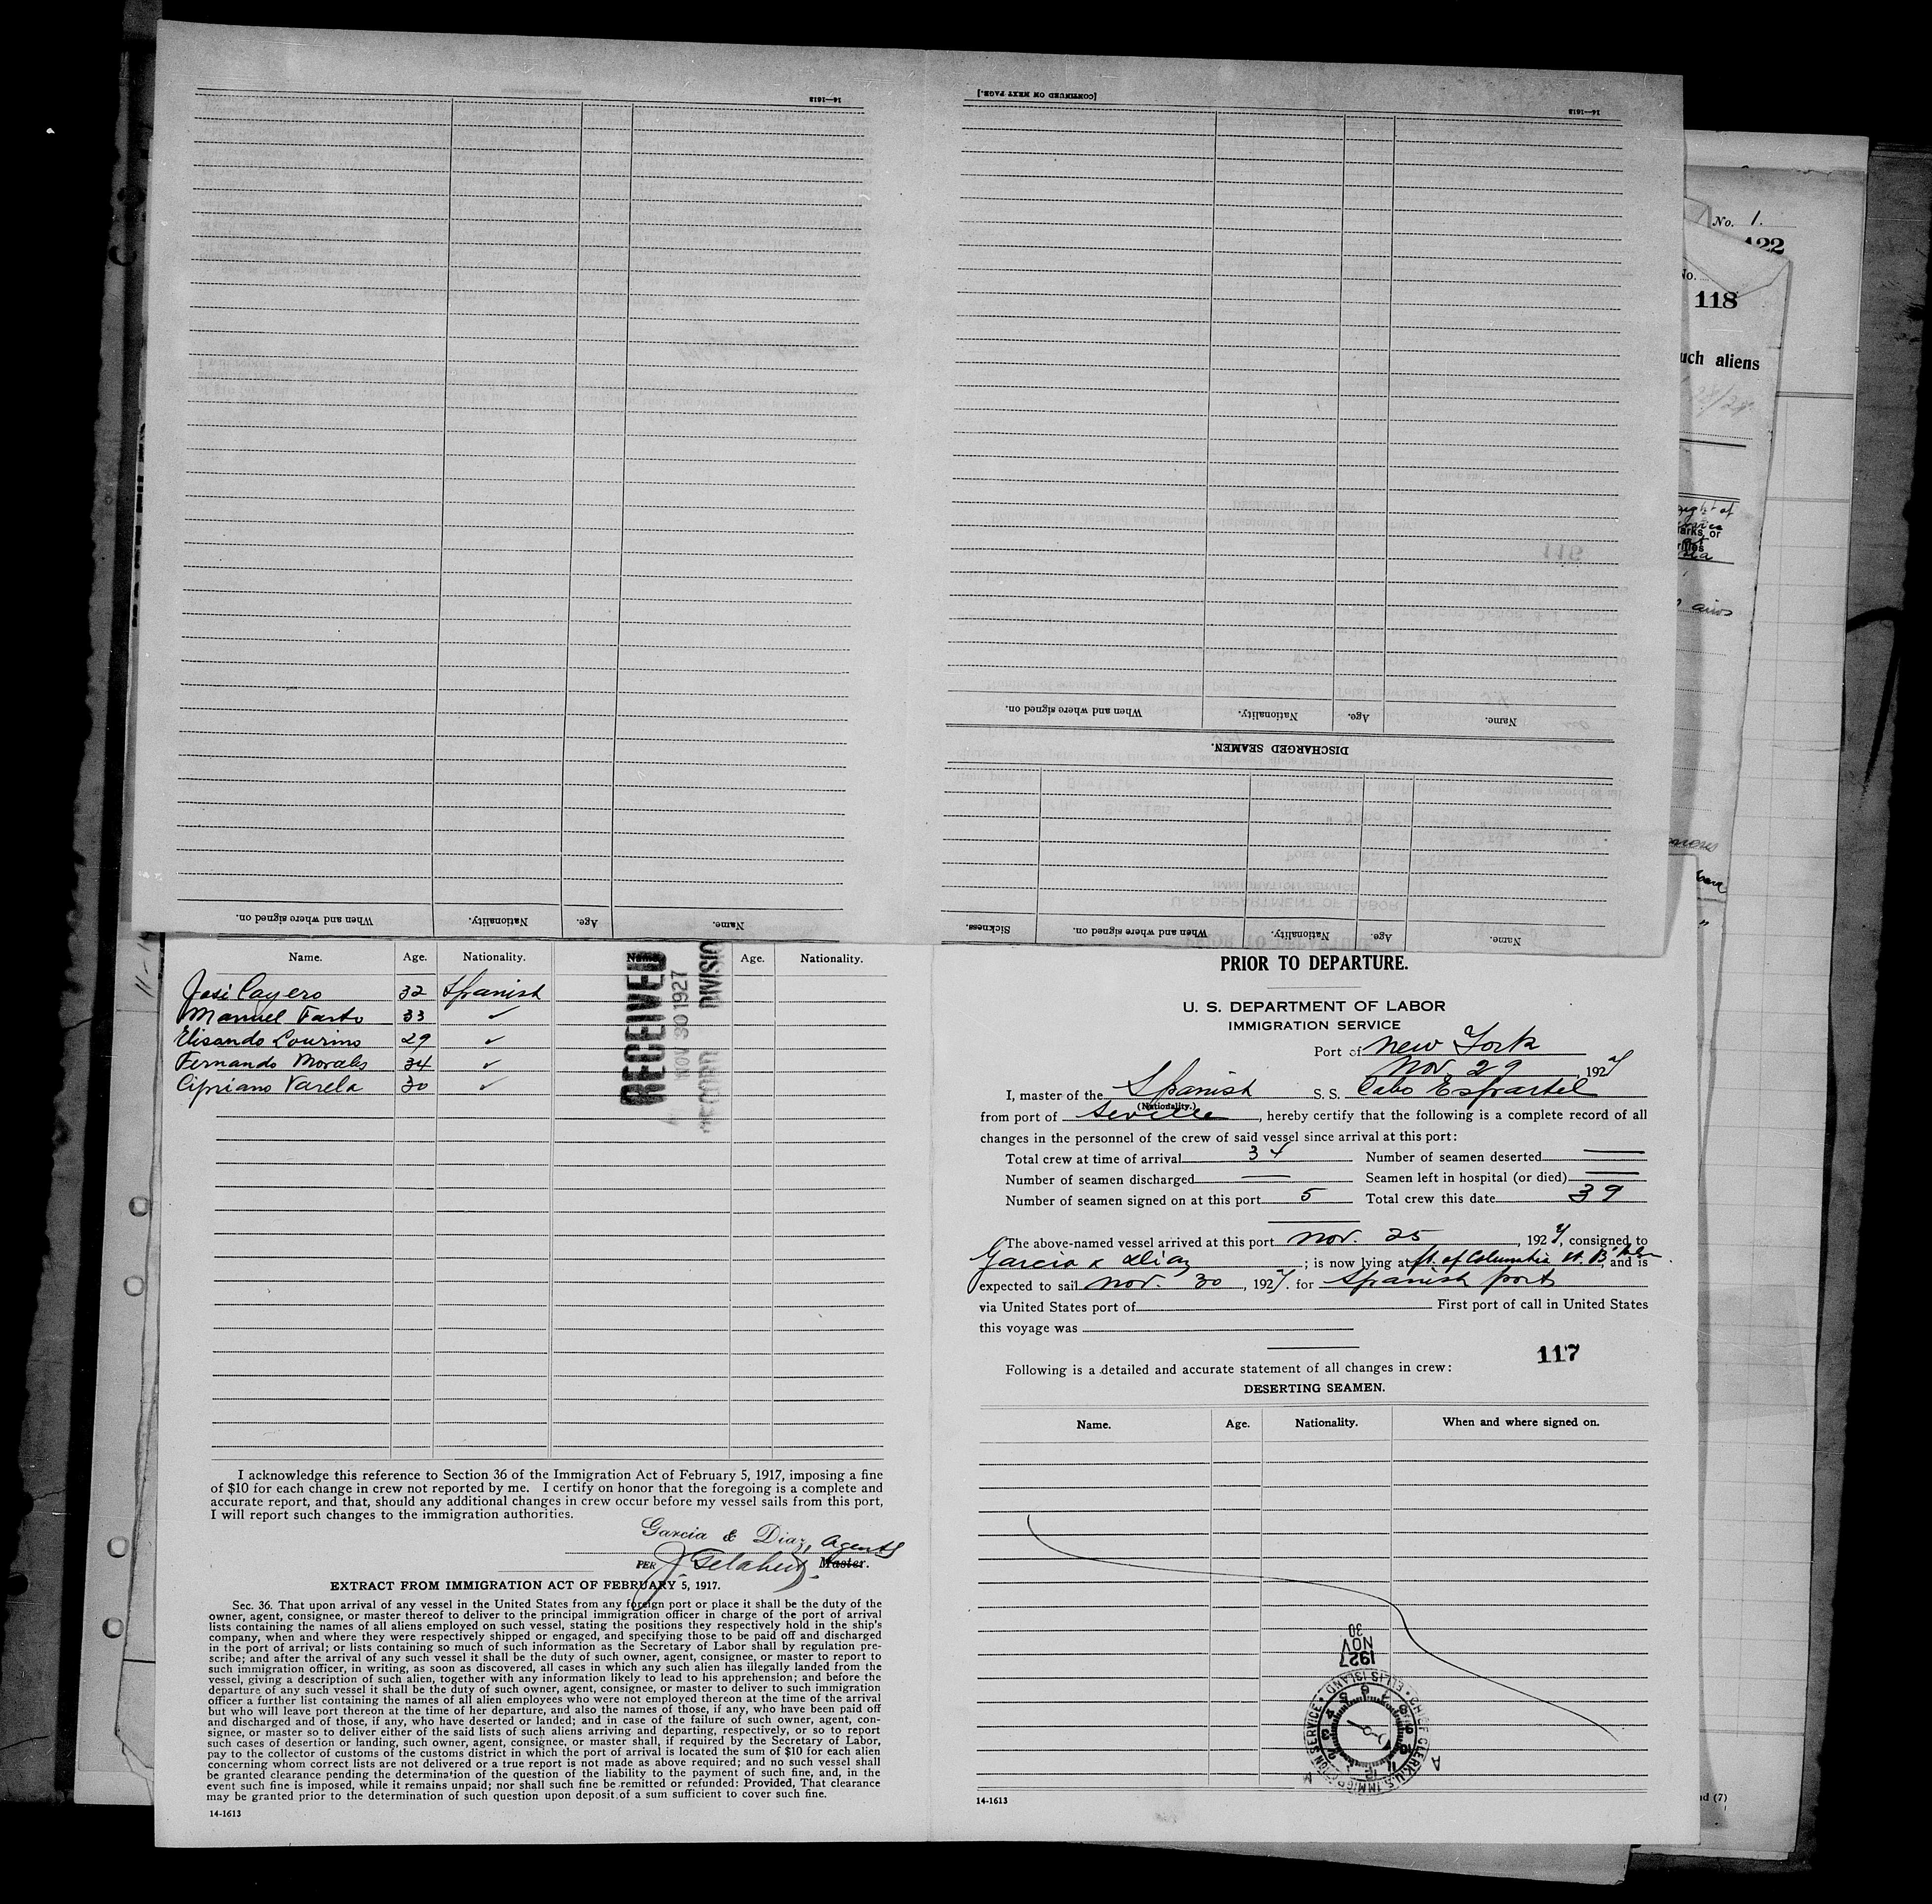 14—1613
[CONTINUED ON NEXT PAGE.]
14—1613
When and where signed on. Nationality. Age. Name.
DISCHARGED SEAMEN.
Sickness. When and where signed on. Nationality. Age. Name.
When and where signed on. Nationality. Age. Name.
No. 1.
122
No.
118
such aliens
Name. Age. Nationality. Name. Age. Nationality.
José Cayero 32 Spanish
Manuel Farto 33 ✓
Elisando Lourino 29 ✓
Fernando Morales 34 ✓
Cipriano Varela 30 ✓
RECEIVED
NOV 30 1927
RECORD DIVISIO
I acknowledge this reference to Section 36 of the Immigration Act of February 5, 1917, imposing a fine
of $10 for each change in crew not reported by me. I certify on honor that the foregoing is a complete and
accurate report, and that, should any additional changes in crew occur before my vessel sails from this port,
I will report such changes to the immigration authorities.
Garcia & Diaz, Agents
PER Master.
EXTRACT FROM IMMIGRATION ACT OF FEBRUARY 5, 1917.
Sec. 36. That upon arrival of any vessel in the United States from any foreign port or place it shall be the duty of the
owner, agent, consignee, or master thereof to deliver to the principal immigration officer in charge of the port of arrival
lists containing the names of all aliens employed on such vessel, stating the positions they respectively hold in the ship's
company, when and where they were respectively shipped or engaged, and specifying those to be paid off and discharged
in the port of arrival; or lists containing so much of such information as the Secretary of Labor shall by regulation pre-
scribe; and after the arrival of any such vessel it shall be the duty of such owner, agent, consignee, or master to report to
such immigration officer, in writing, as soon as discovered, all cases in which any such alien has illegally landed from the
vessel, giving a description of such alien, together with any information likely to lead to his apprehension; and before the
departure of any such vessel it shall be the duty of such owner, agent, consignee, or master to deliver to such immigration
officer a further list containing the names of all alien employees who were not employed thereon at the time of the arrival
but who will leave port thereon at the time of her departure, and also the names of those, if any, who have been paid off
and discharged and of those, if any, who have deserted or landed; and in case of the failure of such owner, agent, con-
signee, or master so to deliver either of the said lists of such aliens arriving and departing, respectively, or so to report
such cases of desertion or landing, such owner, agent, consignee, or master shall, if required by the Secretary of Labor,
pay to the collector of customs of the customs district in which the port of arrival is located the sum of $10 for each alien
concerning whom correct lists are not delivered or a true report is not made as above required; and no such vessel shall
be granted clearance pending the determination of the question of the liability to the payment of such fine, and, in the
event such fine is imposed, while it remains unpaid; nor shall such fine be remitted or refunded: Provided, That clearance
may be granted prior to the determination of such question upon deposit of a sum sufficient to cover such fine.
14-1613
PRIOR TO DEPARTURE.
U. S. DEPARTMENT OF LABOR
IMMIGRATION SERVICE
Port of New York
Nov 29, 1927
I, master of the Spanish S. S. Cabo Espartel
(Nationality.)
from port of Seville, hereby certify that the following is a complete record of all
changes in the personnel of the crew of said vessel since arrival at this port:
Total crew at time of arrival 34 Number of seamen deserted —
Number of seamen discharged — Seamen left in hospital (or died) —
Number of seamen signed on at this port 5 Total crew this date 39
The above-named vessel arrived at this port Nov. 25, 1927, consigned to
Garcia & Diaz; is now lying at ft. of Columbia St. B'klyn, and is
expected to sail Nov. 30, 1927. for Spanish ports
via United States port of First port of call in United States
this voyage was
117
Following is a detailed and accurate statement of all changes in crew:
DESERTING SEAMEN.
Name. Age. Nationality. When and where signed on.
1927
NOV
30
CHIEF CLERK U.S. IMMIGRATION SERVICE • ELLIS ISLAND •
14-1613